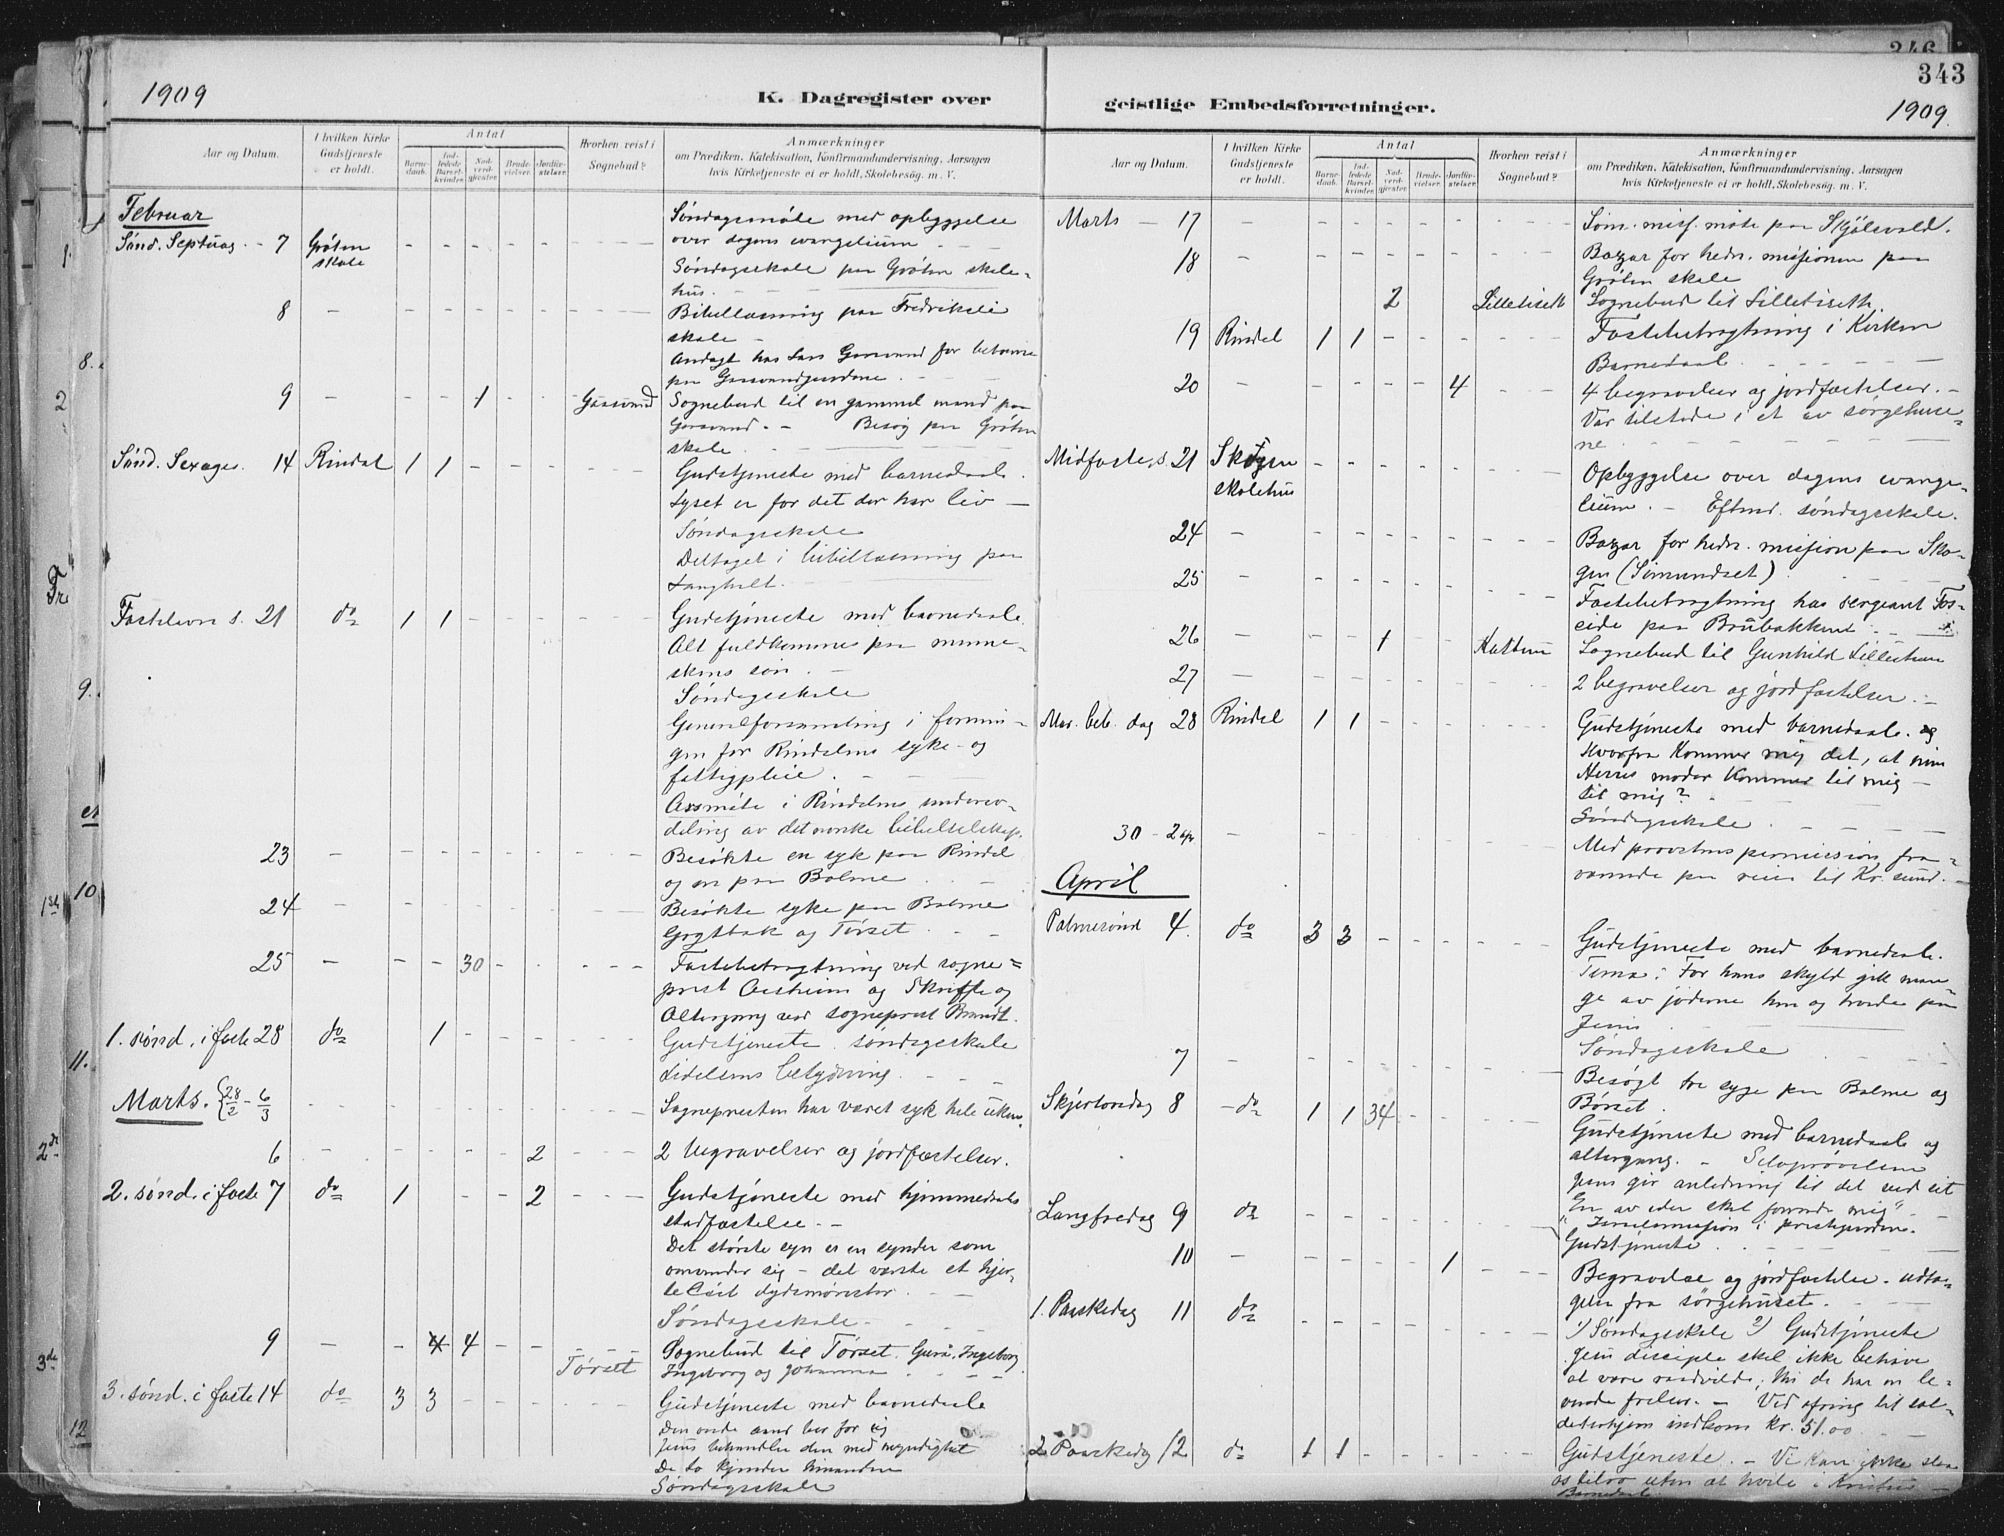 346
343
1909
K. Dagregister over
geistlige Embedsforretninger.
1909.
Aar og Datum.
I hvilken Kirke
Gudstjeneste
er holdt.
Antal
Barne-
daab.
Ind-
ledede
Barsel-
kvinder.
Nad-
verd-
gjester.
Brude-
vielser.
Jordfæ-
stelser.
Hvorhen reist i
Sognebud?
Anmærkninger
om Prædiken, Katekisation, Konfirmandundervisning, Aarsagen
hvis Kirketjeneste ei er holdt, Skolebesøg. m. V.
Februar
Sønd. Septuag. - 7 Grøten
skole
Søndagsmøte med opbyggelse
over dagens evangelium
Søndagsskole paa Grøten skole-
hus.
8 Bibellæsning paa Fredriksli
skole
Andagt hos Lars Gaasvand for beboerne
paa
9 1 Gaasvand Sognebud til en gammel mand paa
Gaasvand. - Besøg paa Grøten
skole.
Sønd. Sexages. 14 Rindal 1 1 Gudstjeneste med barnedaab.
Lyset er for det der har liv
Søndagsskole
Deltaget i bibellæsning paa
Langholt.
Fastelavns s. 21 do 1 1 Gudstjeneste med barnedaab.
Alt fuldkommes paa menne-
skens søn.
Søndagsskole
Generalforsamling i forenin-
gen for Rindalens syke- og
fattigpleie.
Aarsmøte i Rindalens underav-
deling av det norske bibelselskap.
23 Besøkte en syk paa Rindal
og en paa Bolme
24 Besøkte syke paa Bolme
og Tørset.
25 30 Fastebetragtning ved sogne-
prest og Skrifte og
Altergang ved sogneprest Brandt.
1. sønd. i faste 28 do 1 Gudstjeneste. Søndagsskole
Lidelsens betydning.
Marts. { 28/2 - 6/3 Sognepresten har været syk hele uken.
6 2 2 begravelser og jordfæstelser.
2. sønd. i faste 7 do 1 2 Gudstjeneste med hjemmedaabs
stadfæstelse. -
Det største syn er en synder som
omvender sig - det værste et hjer-
te
Søndagsskole.
9 4 4 Tørset Sognebud til Tørset. Guru, Ingeborg
Ingeborg og Johanna
3. sønd. i faste 14 do 3 3 Gudstjeneste med barnedaab
Den onde aand ber for sig
Jesus behandler den med myndighet
De to kjender hinanden
Søndagsskole
Aar og Datum.
I hvilken Kirke
Gudstjeneste
er holdt.
Antal
Barne-
daab.
Ind-
ledede
Barsel-
kvinder.
Nad-
verd-
gjester.
Brude-
vielser.
Jordfæ-
stelser.
Hvorhen reist i
Sognebud?
Anmærkninger
om Prædiken, Katekisation, Konfirmandundervisning, Aarsagen
hvis Kirketjeneste ei er holdt, Skolebesøg. m. V.
Marts - 17 Søm. miss. møte paa Skjølsvold.
18 Bazar for hedn. missionen paa
Grøten skole
2 Lilletiseth Sognebud til Lilletiseth.
19 Rindal 1 1 Fastebetragtning i Kirken
Barnedaab.
20 4 4 begravelser og jordfæstelser. -
Var tilstede i et av sørgehuse-
ne
Midfaste s. 21 Skogen
skolehus
Opbyggelse over dagens evange-
lium. - Eftmd. søndagsskole.
24 Bazar for hedn. mission paa Sko-
gen (Simundset)
25 Fastebetragtning hos sergeant Fos-
eide paa Brubakken
26 1 Sognebud til Gunhild
27 2 begravelser og jordfæstelser. -
Mar. beb. dag 28 Rindal 1 1 Gudstjeneste med barnedaab.
Hvorfra kommer mig det, at min
Herres moder kommer til mig -
til mig?
Søndagsskole
30 - 2 apr Med provstens permission fra-
værende paa reise til Kr. sund. -
April
Palmesønd 4. do 3 3 Gudstjeneste med barnedaab.
Tema: For hans skyld gik man-
ge av jøderne hen og trodde paa
Jesus
Søndagsskole
7 Besøgt tre syge paa Bolme og
Børset.
Skjærtorsdag 8 do 1 1 34 Gudstjeneste med barnedaab og
altergang. - Selvprøvelsen
Jesus gir anledning til det ved sit
"En av eder skal forraade mig"
Langfredag 9 do i prestegaarden.
Gudstjeneste
10 1 Begravelse og jordfæstelse. Udta-
gelse fra sørgehuset.
1. Paaskedag 11 do 1) Søndagsskole 2) Gudstjeneste
Jesu disciple skal ikke behøve
at være raadvilde; thi de har en le-
vende frelser. - Ved ofring til
indkom kr. 51.00
2. Paaskedag 12 do 1 1 Gudstjeneste. - Vi kan ikke slaa
os tilro uten at hvile i Kristus -
Barnedaab.